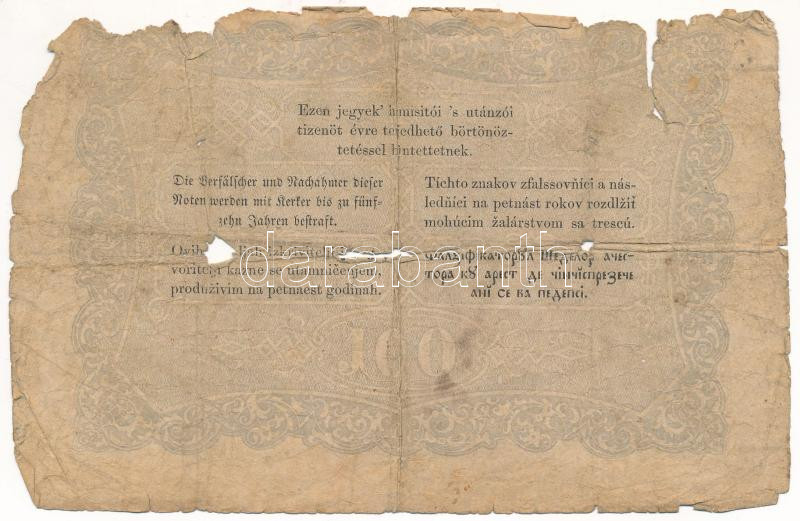 Ezen jegyek' hamisitói 's utánzói
tizenöt évre terjedhető börtönöz-
tetéssel büntettetnek.
Die Verfälscher und Nachahmer dieser
Noten werden mit Kerker bis zu fünf-
zehn Jahren bestraft.
Tíchto znakov zfalssovňíci a nás-
ledňíci na petnást rokov rozdlžiť
mohúcim žalárstvom sa trescú.
voritelji kazne se utamničenjem,
produživim na petnaest godinah.
ачес-
тора кꙋ арест де
анй се ва педепсі.
100
darabanth